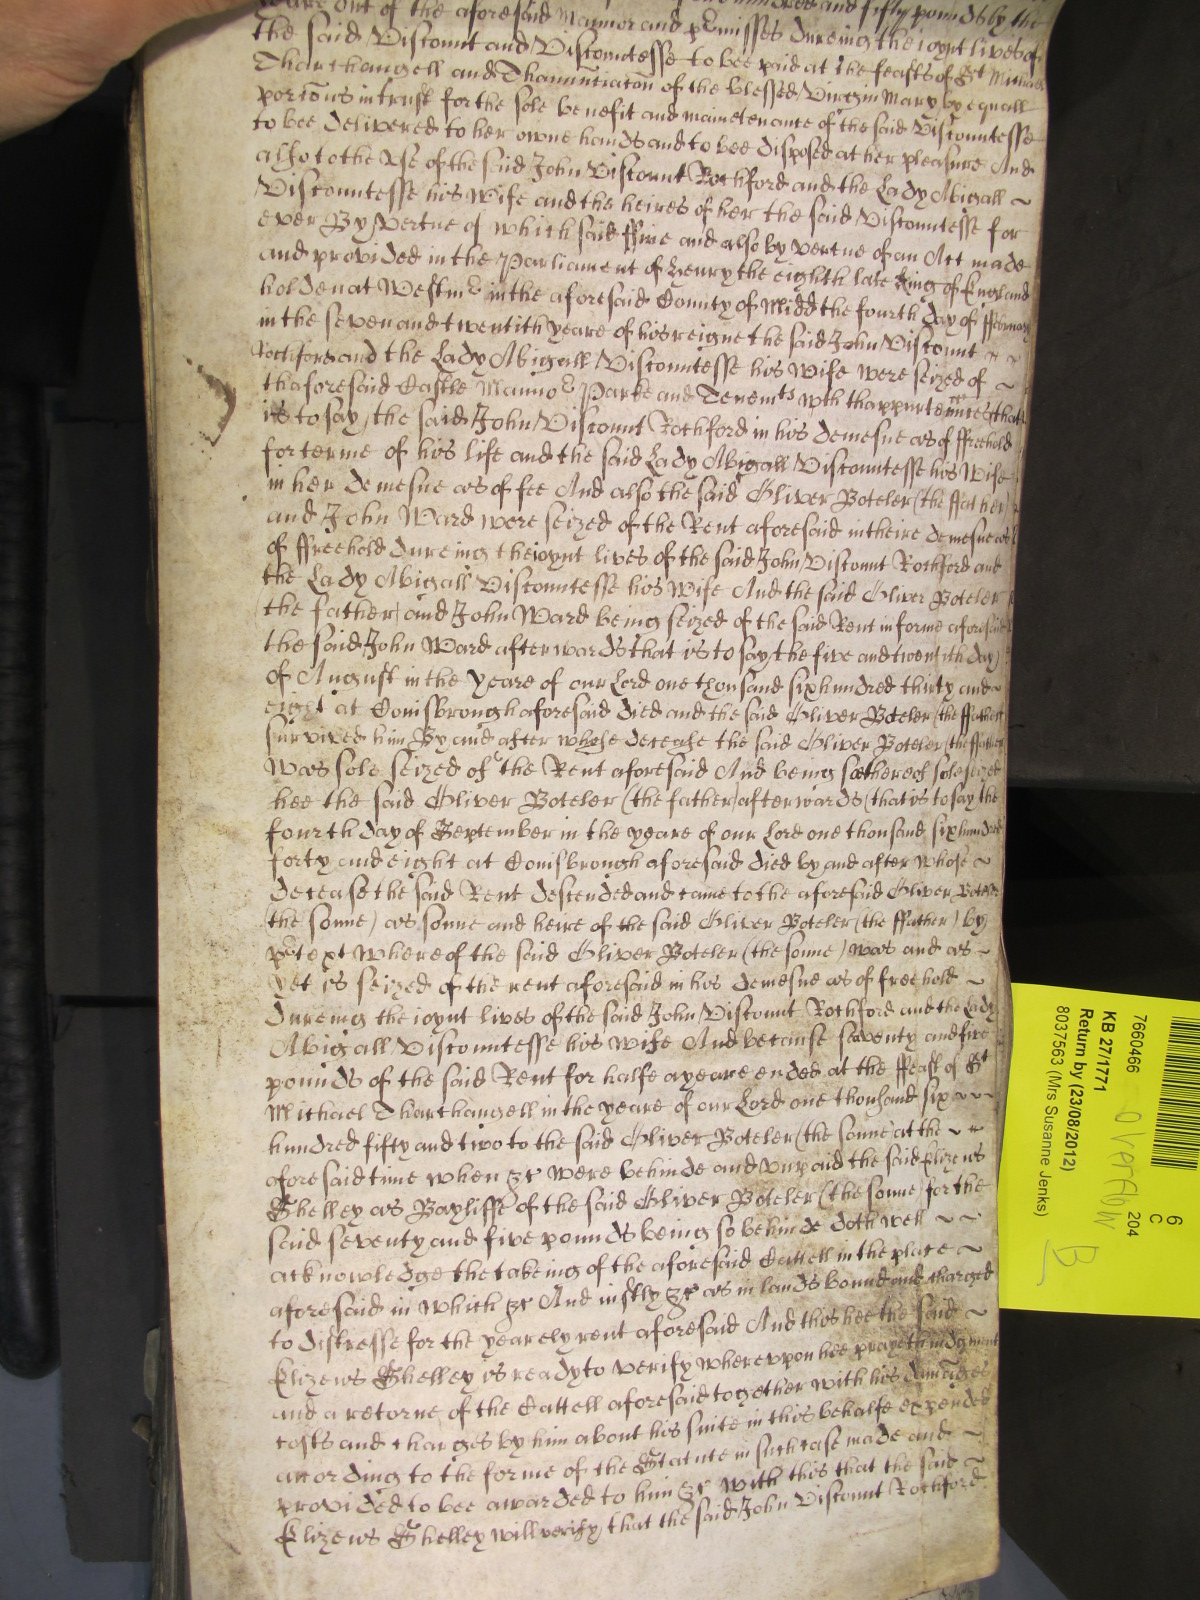 yeare out of the aforesaid Mannor and p'misses dureing the ioynt lives of
the said Viscount and Viscountesse to bee paid at the feasts of St Michaell
Tharchangell and Thanunciacon of the blessed Virgin Mary by equall
porcons in trust for the sole benefit and maintenance of the said Viscountesse
to bee delivered to her owne hands and to bee disposed at her pleasure And
also to the vse of the said John Viscount Rochford and the Lady Abigall ~
Viscountesse his Wife and the heires of her the said Viscountesse for
ever By vertue of which said ffine and also by vertue of an Act made
and provided in the Parliament of Henry the eighth late King of England
holden at Westm' in the aforesaid County of Midd the fourth day of ffebruary
in the seven and twentith yeare of his reigne the said John Viscount ~ ~
Rochford and the Lady Abigall Viscountesse his Wife were seized of ~
thaforesaid Castle Manno' Parke and Tenemts wth thappurtennces (that
is to say) the said John Viscount Rochford in his demesne as of ffreehold
for terme of his life and the said Lady Abigall Viscountesse his Wife
in her demesne as of fee And also the said Oliver Boteler (the ffather)
and John Ward were seized of the Rent aforesaid in theire demesne as
of ffreehold dureing the ioynt lives of the said John Viscount Rochford and
the Lady Abigall Viscountesse his Wife And the said Oliver Boteler
(the father) and John Ward being seized of the said Rent in forme aforesaid
the said John Ward afterwards that is to say the five and twentith day
of August in the yeare of our Lord one thousand six hundred thirty and ~
eight at Conisbrough aforesaid died and the said Oliver Boteler (the ffather)
survived him By and after whose decease the said Oliver Boteler (the ffather)
was sole seized of the Rent aforesaid And being soe thereof sole seized
hee the said Oliver Boteler (the father) afterwards (that is to say) the
fourth day of September in the yeare of our Lord one thousand six hundred
forty and eight at Conisbrough aforesaid died by and after whose ~
decease the said Rent descended and came to the aforesaid Oliver Boteler
(the sonne) as sonne and heire of the said Oliver Boteler (the ffather) by
p'text whereof the said Oliver Boteler (the sonne) was and as ~
yet is seized of the rent aforesaid in his demesne as of freehold ~
Dureing the ioynt lives of the said John Viscount Rochford and the Lady
Abigall Viscountesse his Wife And because seventy and five
pounds of the said Rent for halfe a yeare ended at the ffeast of St
Michael Tharchangell in the yeare of our Lord one thousand six ~ ~ ~
hundred fifty and two to the said Oliver Boteler (the sonne) at the ~ ~
aforesaid time when &c were behinde and vnpaid the said Elizeus
Shelley as Bayliffe of the said Oliver Boteler (the sonne) for the
said seventy and five pounds being so behinde doth well ~ ~
acknowledge the takeing of the aforesaid Cattell in the place ~
aforesaid in which &c And iustly &c as in lands bound and charged
to distresse for the yearely rent aforesaid And this hee the said ~
Elizeus Shelley is ready to verify wherevpon hee prayeth iudgment
and a retorne of the Cattell aforesaid together with his damages
costs and charges by him about his suite in this behalfe expended
according to the forme of the Statute in such case made and ~
provided to bee awarded to him &c With this that the said ~
Elizeus Shelley will verify that the said John Viscount Rochford
6
C
7660466 204
overflow
KB 27/1771
Return by (23/08/2012)
8037563 (Mrs Susanne Jenks)
B